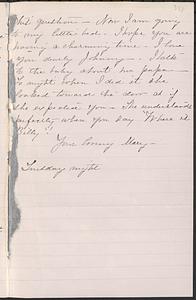 this question — Now I am going
to my little bed. I hope you are
having a charming time. I love
you dearly Johnny — I talk
to the baby about his papa —
to night when I did it she
looked towards the door as if
she expected you. She understands
perfectly when you say "Where is
Billy?"
Your loving Mary —
Tuesday night